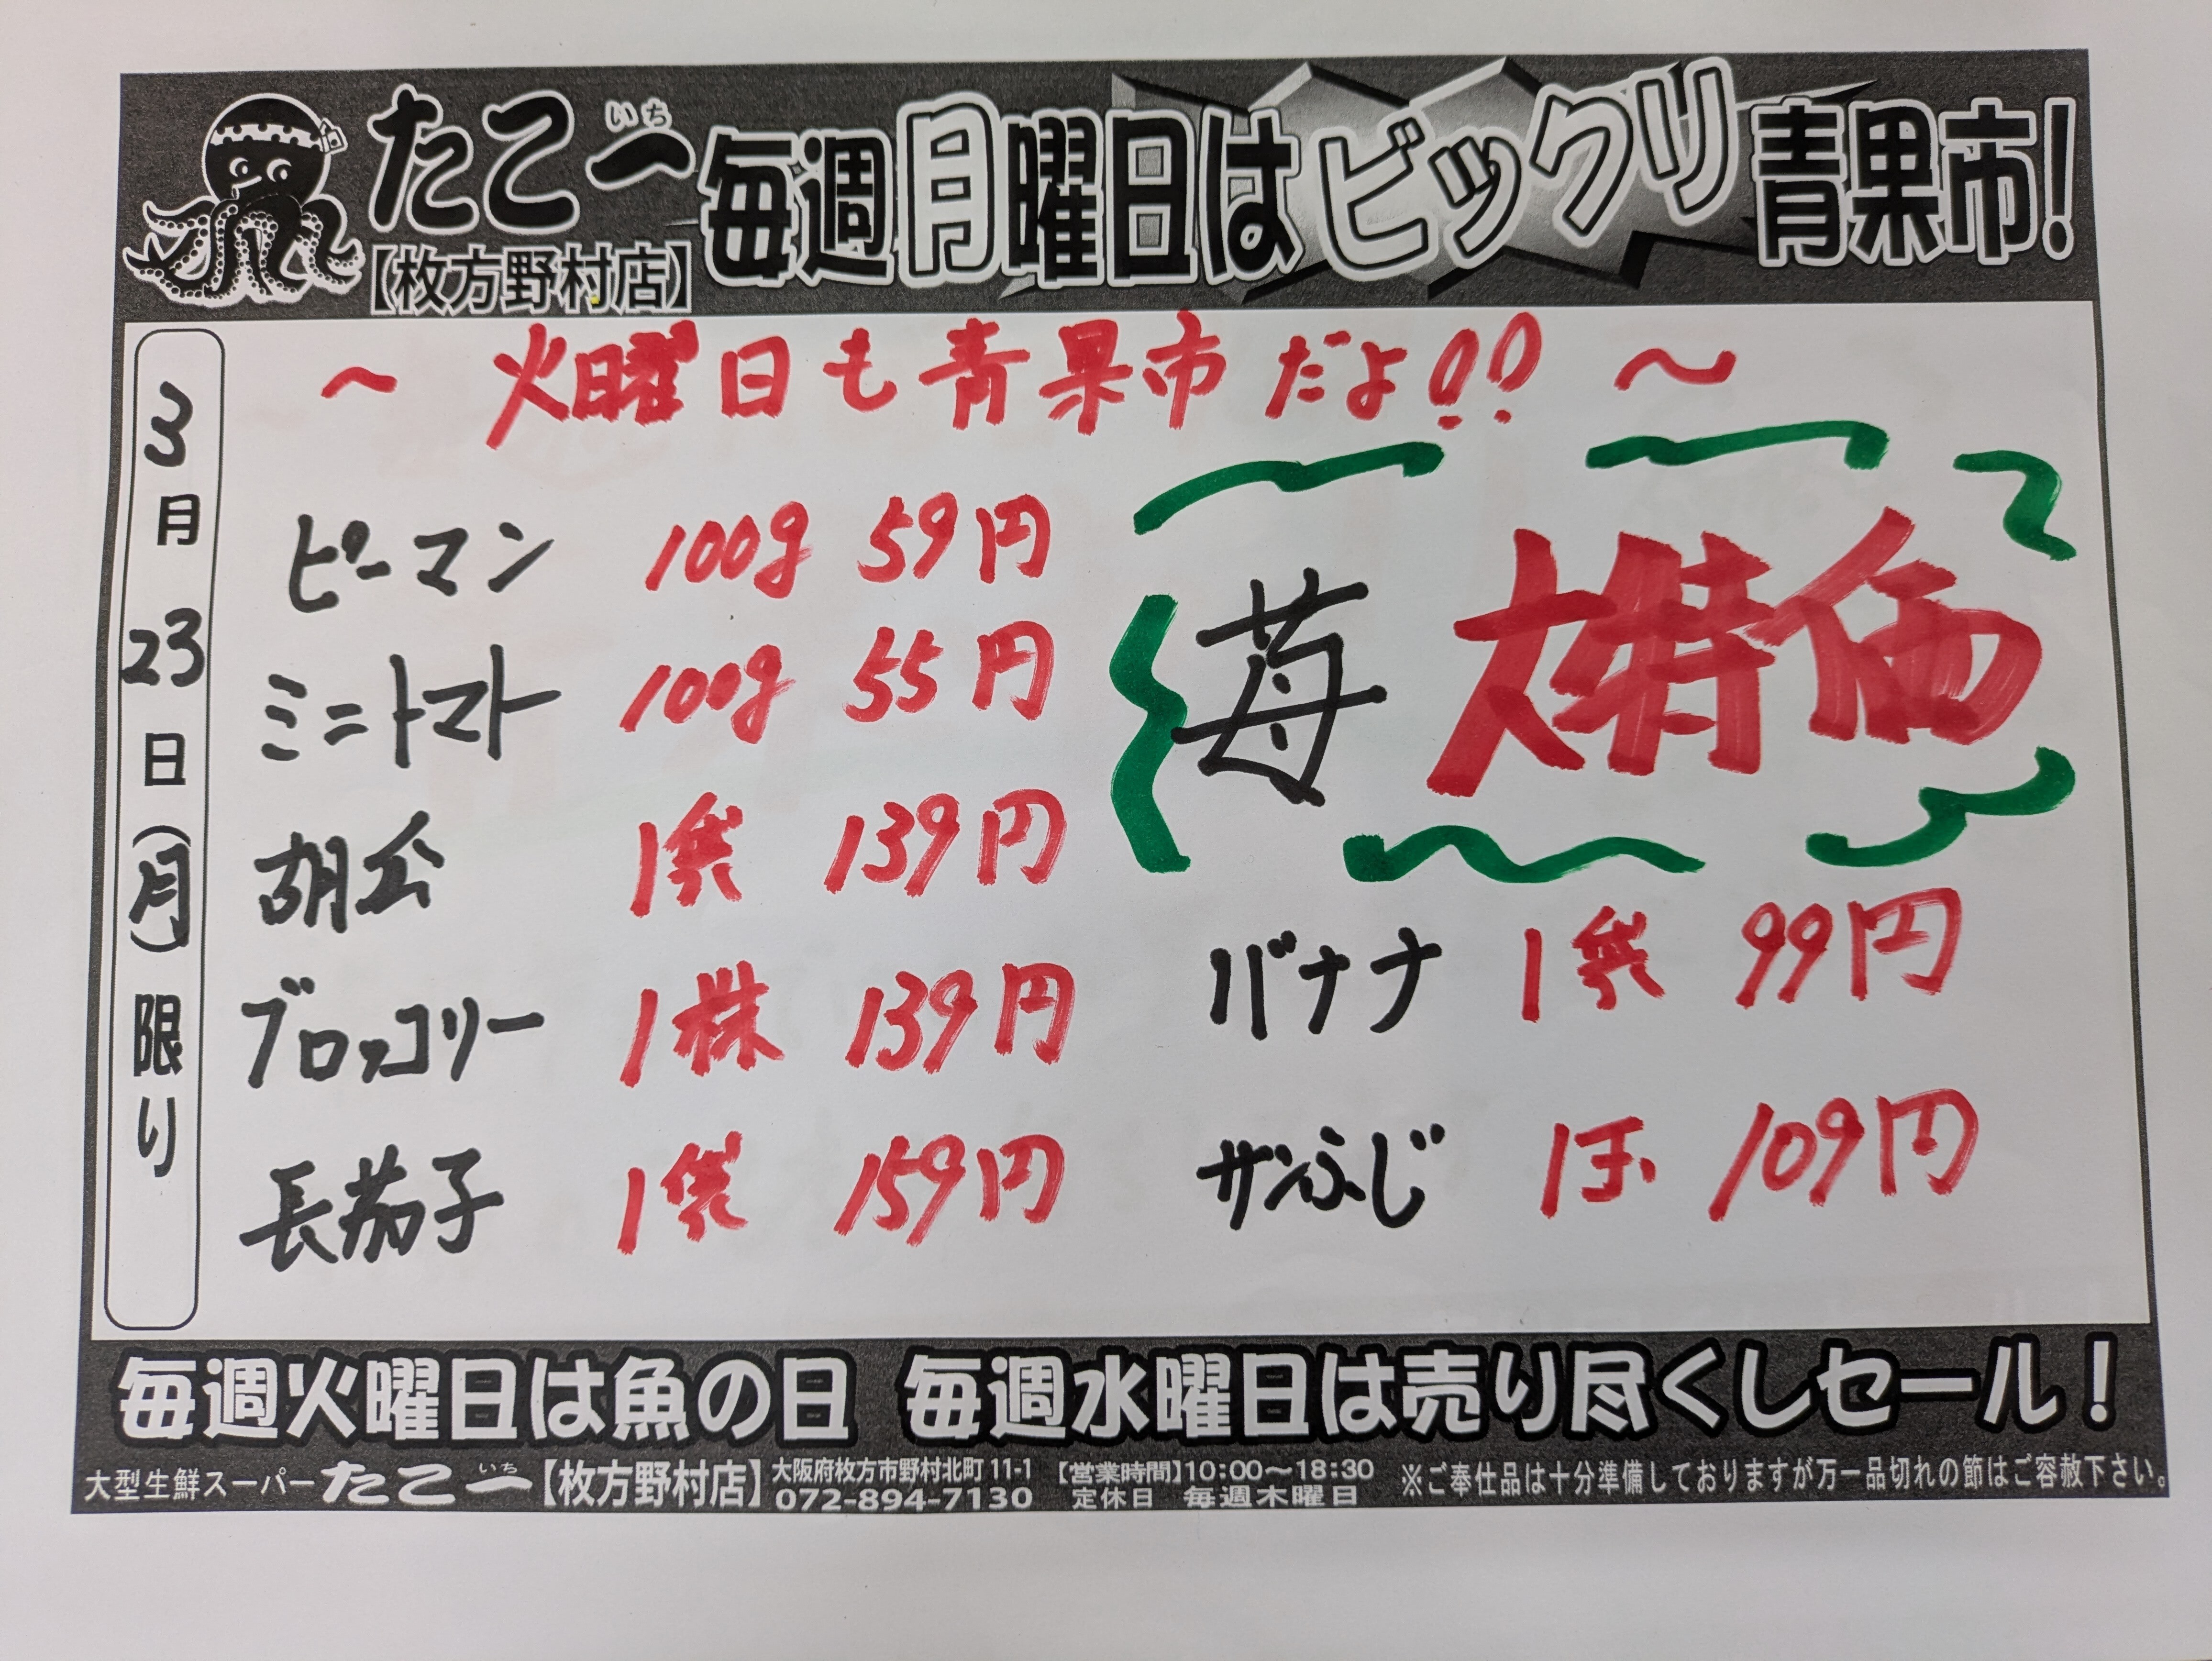 たこ一 毎週月曜日はビックリ青果市!
いち
【枚方野村店】
～ 火曜日も青果市だよ!! ～
3月23日(月)限り
ピーマン 100g 59円
ミニトマト 100g 55円
胡瓜 1袋 139円
ブロッコリー 1株 139円
長茄子 1袋 159円
苺 大特価
バナナ 1袋 99円
サンふじ 1ホ 109円
毎週火曜日は魚の日 毎週水曜日は売り尽くしセール!
大型生鮮スーパー たこ一 【枚方野村店】
いち
大阪府枚方市野村北町11-1
072-894-7130
【営業時間】10:00～18:30
定休日 毎週木曜日
※ご奉仕品は十分準備しておりますが万一品切れの節はご容赦下さい。